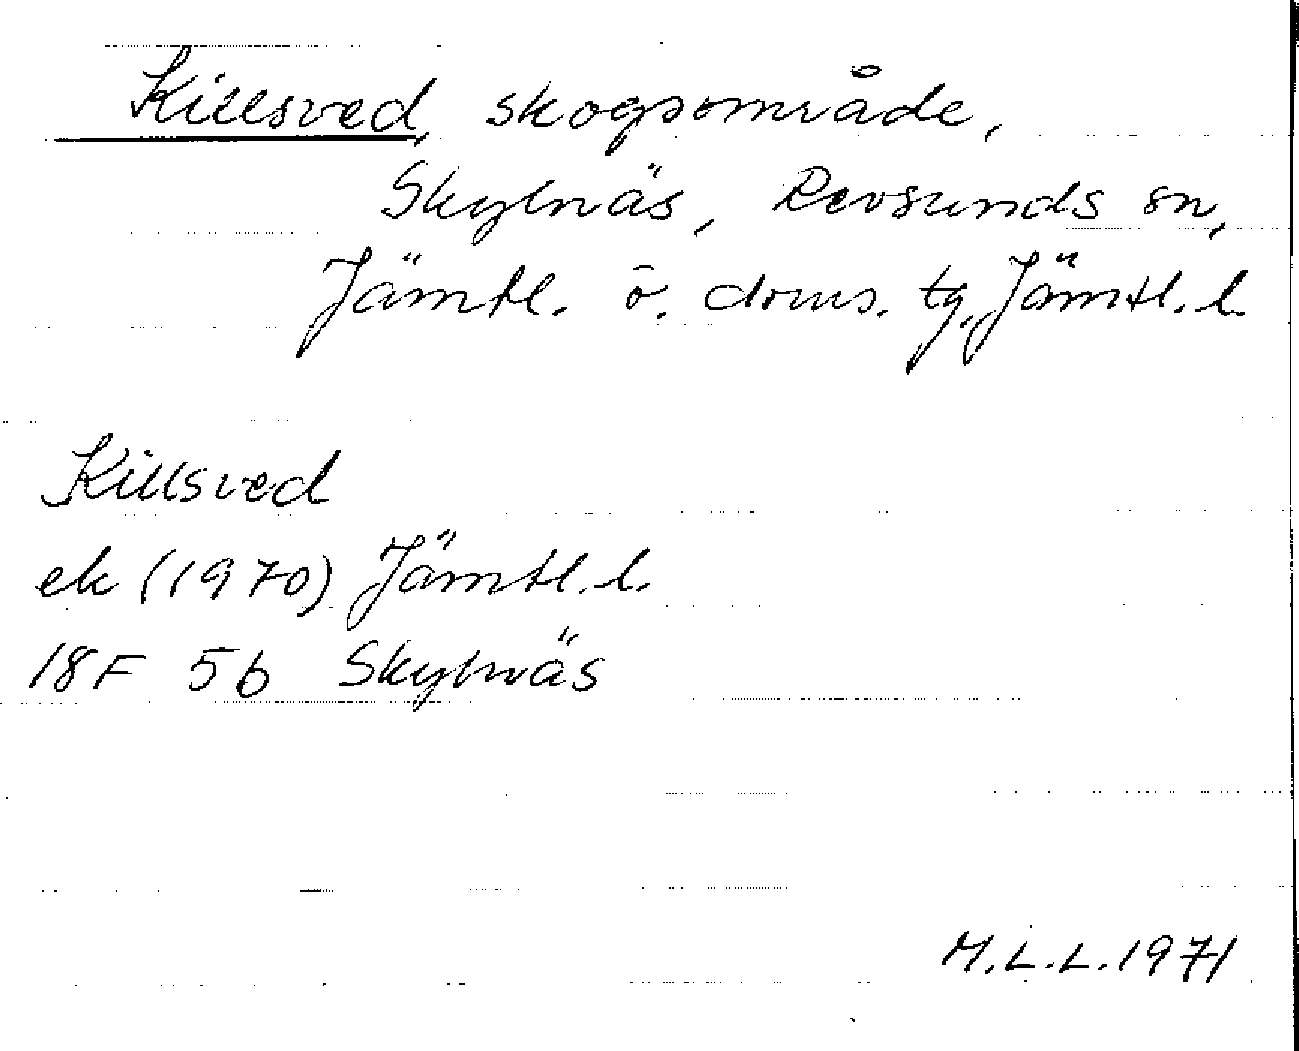 Killsved, skogsområde,
Skylnäs, Revsunds sn,
Jämtl. ö. doms. tg, Jämtl. l.
Killsved
ek (1970) Jämtl. l.
18F 5b Skylnäs
M.L.L. 1971